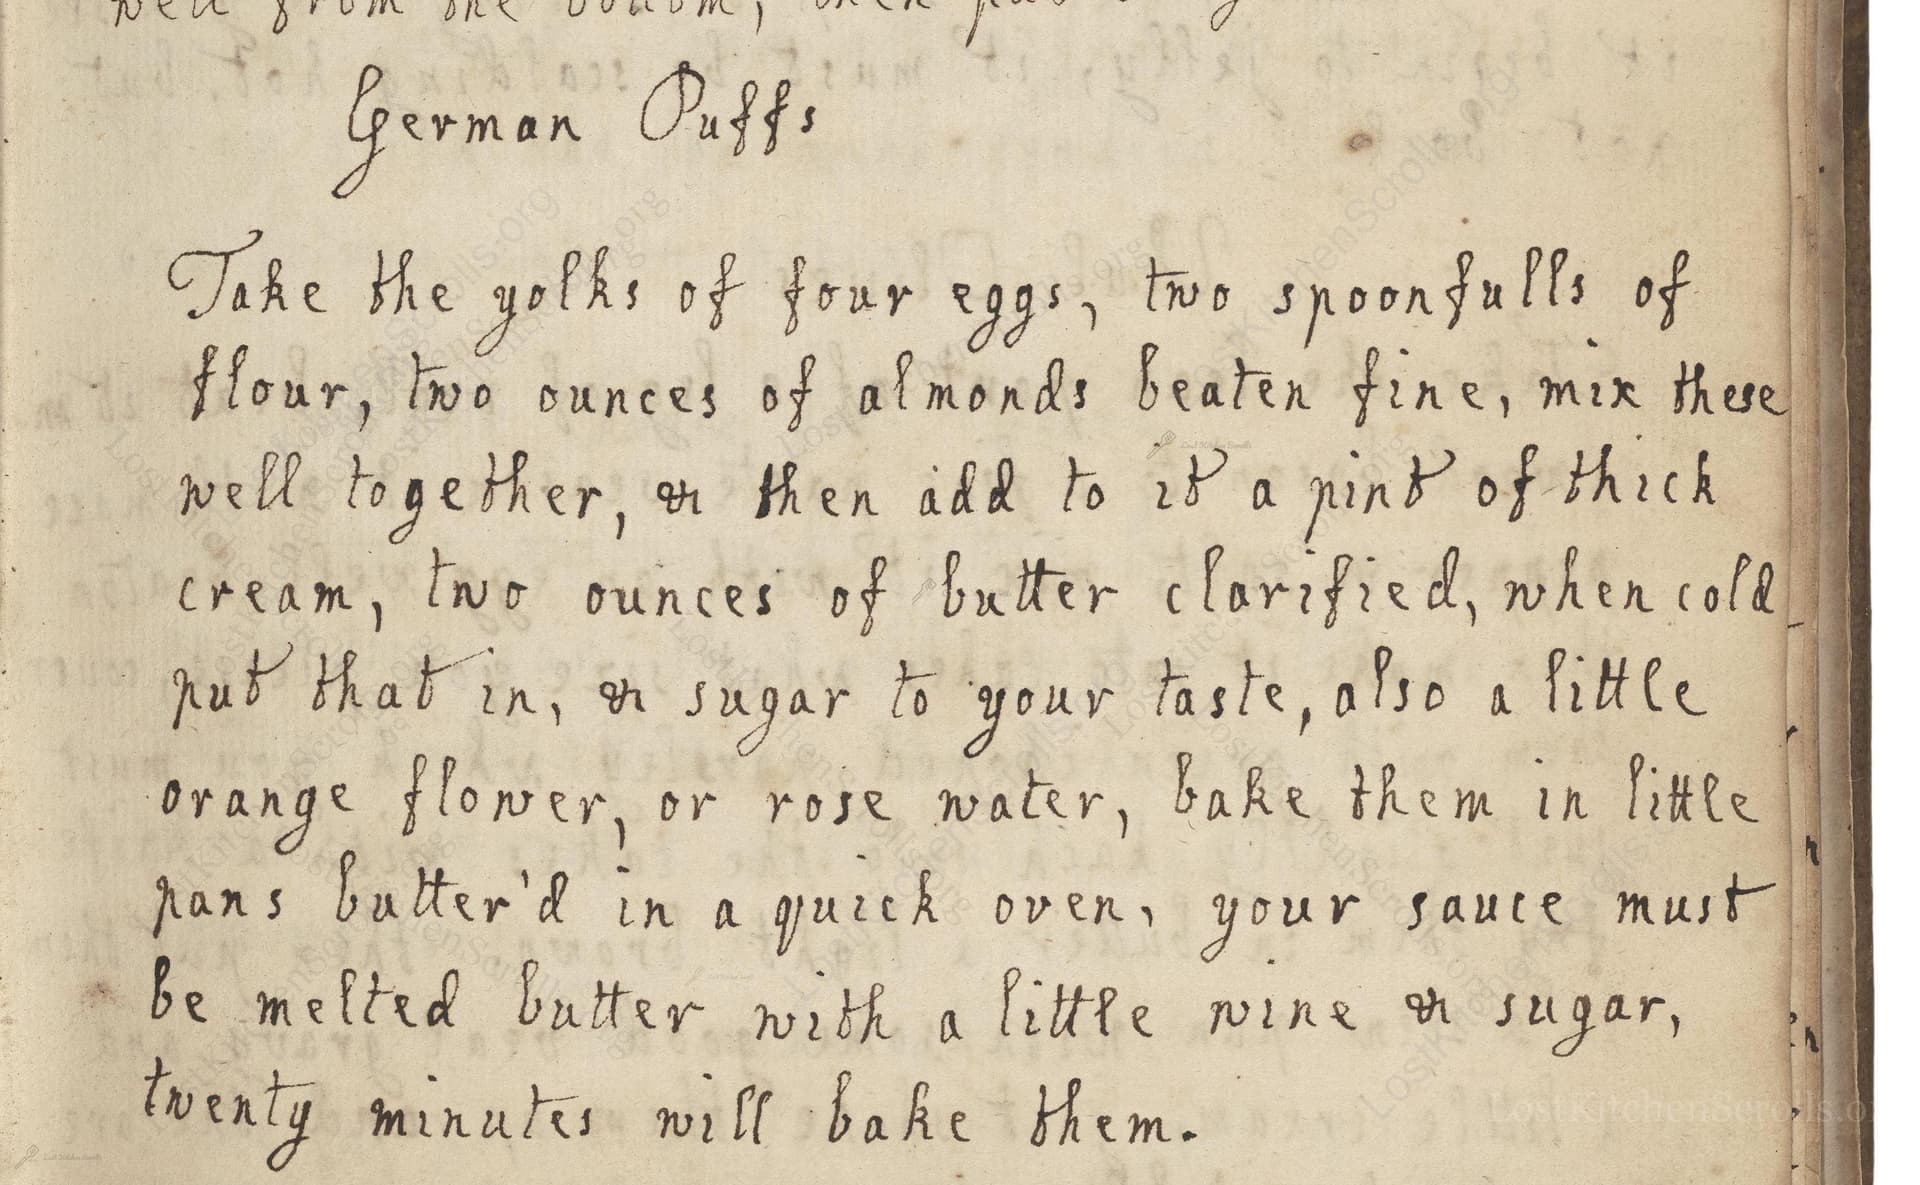 well from the bottom, then put
German Puffs
Take the yolks of four eggs, two spoonfulls of
flour, two ounces of almonds beaten fine, mix these
well together, & then add to it a pint of thick
cream, two ounces of butter clarified, when cold
put that in, & sugar to your taste, also a little
orange flower, or rose water, bake them in little
pans butter'd in a quick oven, your sauce must
be melted butter with a little wine & sugar,
twenty minutes will bake them.
LostKitchenScrolls.org